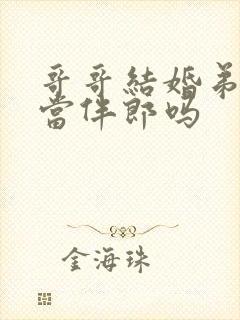 哥哥結婚弟
當伴郎吗
金海珠